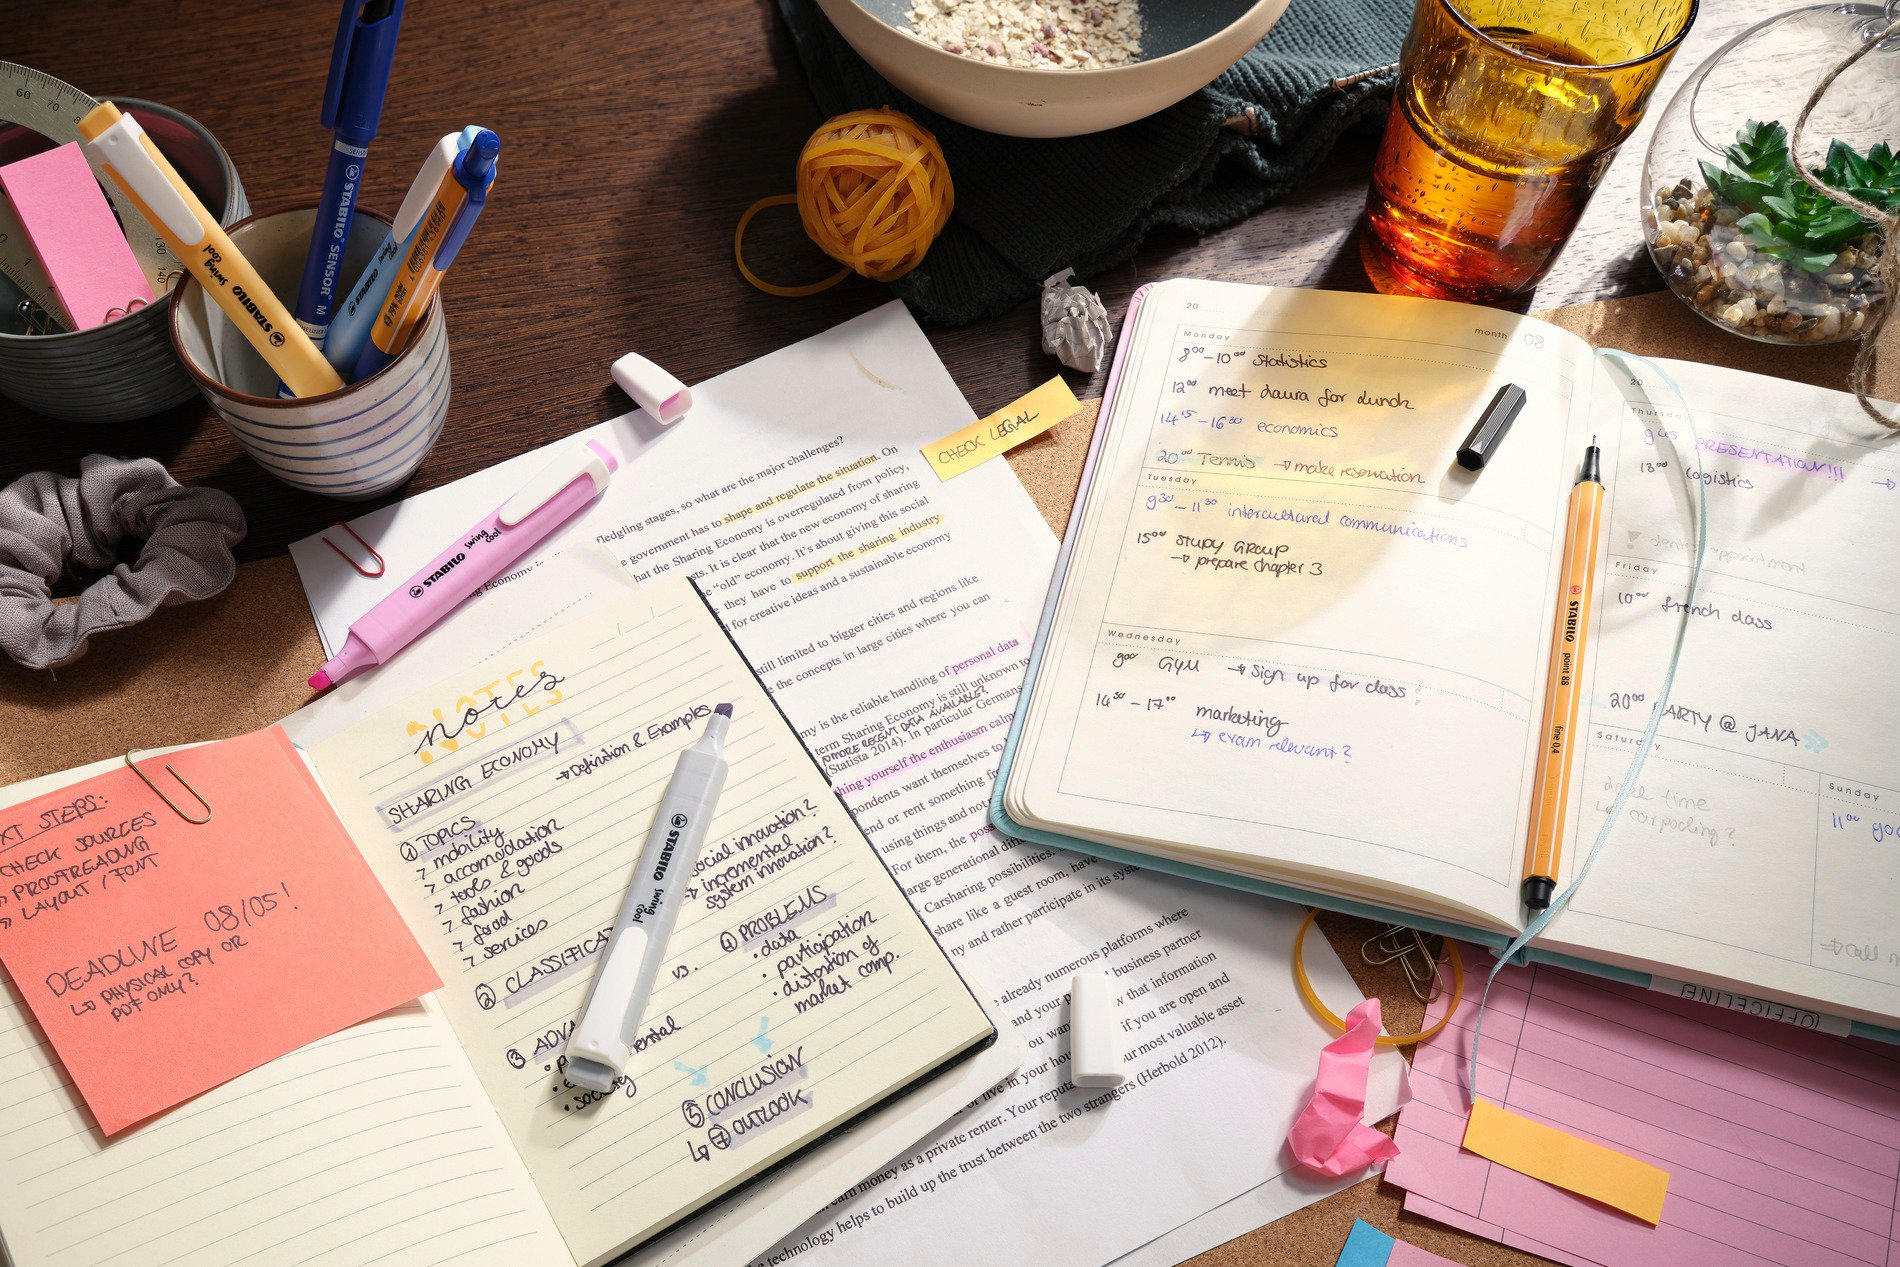 60
70
130
140
STABILO swing cool
STABILO SENSOR M
STABILO swing cool
STABILO swing cool
CHECK LEGAL
fledgling stages, so what are the major challenges?
government has to shape and regulate the situation. On
hat the Sharing Economy is overregulated from policy,
sts. It is clear that the new economy of sharing
"old" economy. It's about giving this social
they have to support the sharing industry
for creative ideas and a sustainable economy
still limited to bigger cities and regions like
the concepts in large cities where you can
my is the reliable handling of personal data
term Sharing Economy is still unknown to
MORE RECENT DATA AVAILABLE?
(Statista 2014). In particular Germans
hing yourself the enthusiasm calm
pondents want themselves to
end or rent something
using things and not
For them, the
large generational
Carsharing possibilities.
share like a guest room, have
ny and rather participate in its
already numerous platforms where
and your business partner
ou that information
if you are open and
or live in your our most valuable asset
earn money as a private renter. Your
technology helps to build up the trust between the two strangers (Herbold 2012).
notes
SHARING ECONOMY
→ Definition & Examples
① TOPICS
> mobility
> accomodation
> tools & goods
> fashion
> food
> services
social innovation?
→ incremental
system innovation?
② CLASSIFICAT
vs.
③ ADV
ental
• society
④ PROBLEMS
• data
• participation
• distortion of
market comp.
⑤ CONCLUSION
↳ ⑦ OUTLOOK
STABILO swing cool
XT STEPS:
CHECK SOURCES
» PROOFREADING
» LAYOUT / FONT
DEADLINE 08/05!
↳ PHYSICAL COPY OR
PDF ONLY?
20
month 08
Monday
8⁰⁰-10⁰⁰ Statistics
12⁰⁰ meet Laura for lunch
14¹⁵-16³⁰ economics
20⁰⁰ Tennis → make reservation
Tuesday
9³⁰-11³⁰ intercultured communications
15⁰⁰ STUDY GROUP
→ prepare chapter 3
Wednesday
9⁰⁰ GYM → sign up for class
14³⁰-17⁰⁰ marketing
↳ exam relevant?
STABILO point 88 fine 0,4
20
Thursday
9⁴⁵ PRESENTATION!!!
13⁰⁰ Logistics
Friday
10⁰⁰ french class
20⁰⁰ PARTY @ JANA
Saturday
↳ carpooling?
Sunday
11⁰⁰
OFFICELINE